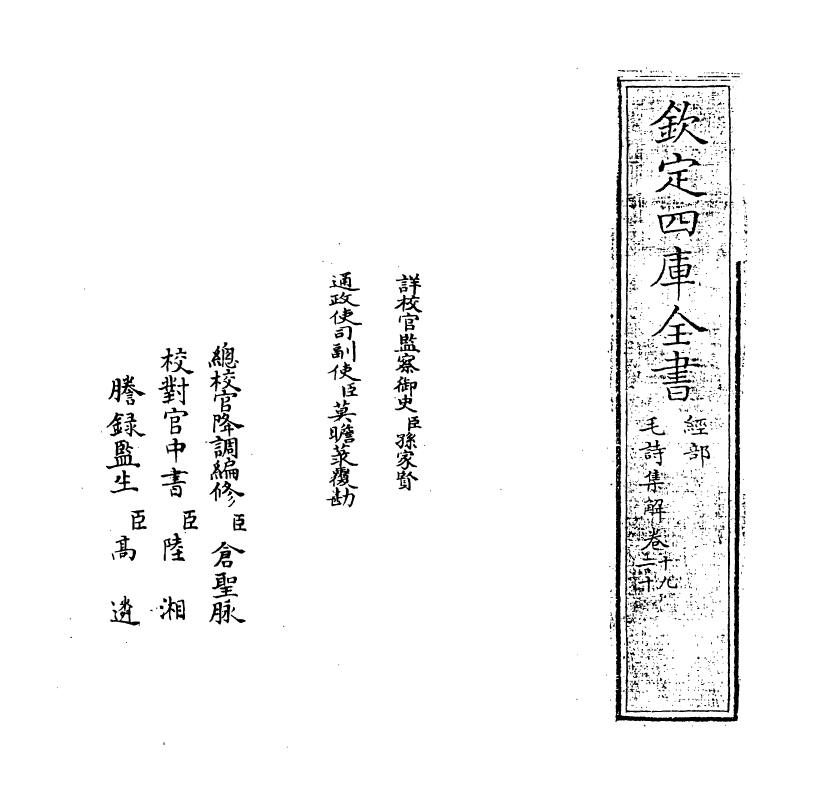 欽定四庫全書
經部
毛詩集解卷十九
二十
詳校官監察御史臣孫家賢
通政使司副使臣莫瞻菉覆勘
總校官降調編修臣倉聖脉
校對官中書臣陸湘
謄録監生臣高遴